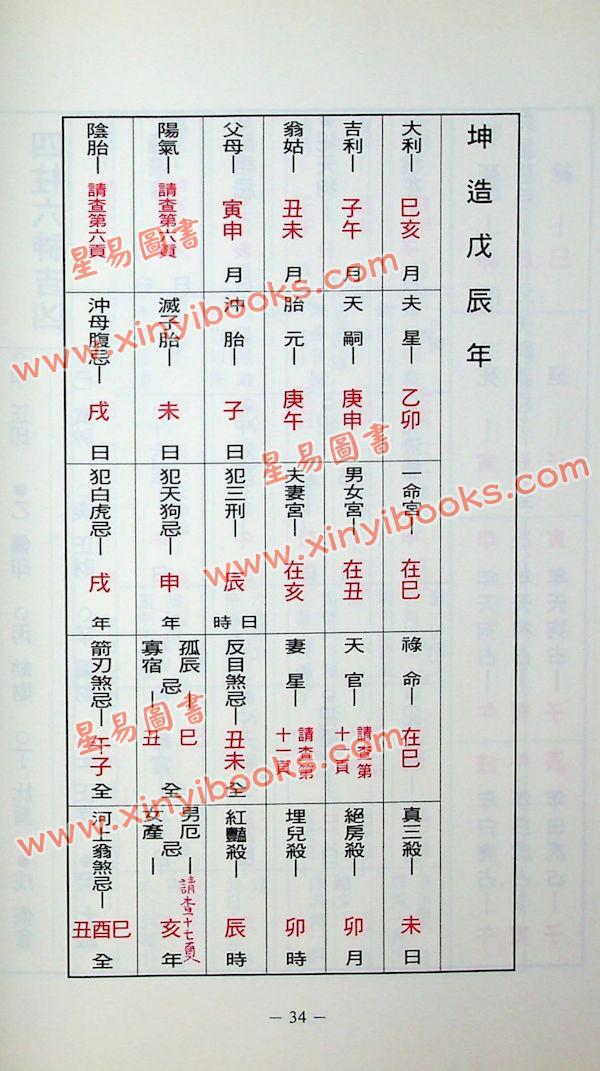 坤造戊辰年
大利—巳亥月
夫星—乙卯
一命宮—在巳
祿命—在巳
真三殺—未日
吉利—子午月
天嗣—庚申
男女宮—在丑
天官—請查第十一頁
絕房殺—卯月
翁姑—丑未月
胎元—庚午
夫妻宮—在亥
妻星—請查第十一頁
埋兒殺—卯時
父母—寅申月
沖胎—子日
犯三刑—辰日時
反目煞忌—丑未全
紅艷殺—辰時
陽氣—請查第六頁
滅子胎—未日
犯天狗忌—申年
孤辰寡宿忌—巳丑全
男厄女產忌—請查十七頁亥年
陰胎—請查第六頁
沖母腹忌—戌日
犯白虎忌—戌年
箭刃煞忌—午子全
河上翁煞忌—丑酉巳全
— 34 —
星易圖書
www.xinyibooks.com
星易圖書
www.xinyibooks.com
星易圖書
www.xinyibooks.com